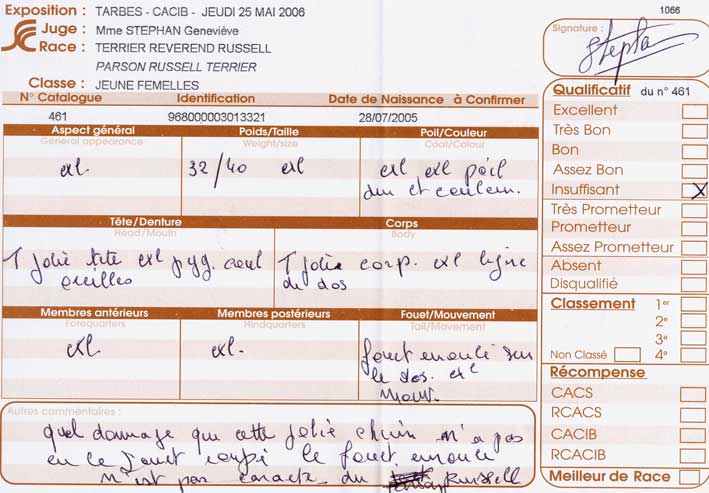 Exposition : TARBES - CACIB - JEUDI 25 MAI 2006
1066
Juge : Mme STEPHAN Geneviève
Race : TERRIER REVEREND RUSSELL
PARSON RUSSELL TERRIER
Classe : JEUNE FEMELLES
Signature :
N° Catalogue Identification Date de Naissance à Confirmer
461 968000003013321 28/07/2005
Aspect général Poids/Taille Poil/Couleur
General appearance Weight/size Coat/Colour
exl. 32/40 exl exl exl poil
dur et couleur.
Tête/Denture Corps
Head/Mouth Body
T jolie tête exl pyg. oeil T jolie corp. exl ligne
oreilles de dos
Membres antérieurs Membres postérieurs Fouet/Mouvement
Forequarters Hindquarters Tail/Movement
exl. exl. fouet enroulé sur
le dos. exl
mouv.
Autres commentaires :
quel dommage que cette jolie chien n'a pas
le fouet enroulé
n'est pas caract. du Russell
Qualificatif du n° 461
Excellent
Très Bon
Bon
Assez Bon
Insuffisant X
Très Prometteur
Prometteur
Assez Prometteur
Absent
Disqualifié
Classement 1er
2e
3e
Non Classé 4e
Récompense
CACS
RCACS
CACIB
RCACIB
Meilleur de Race